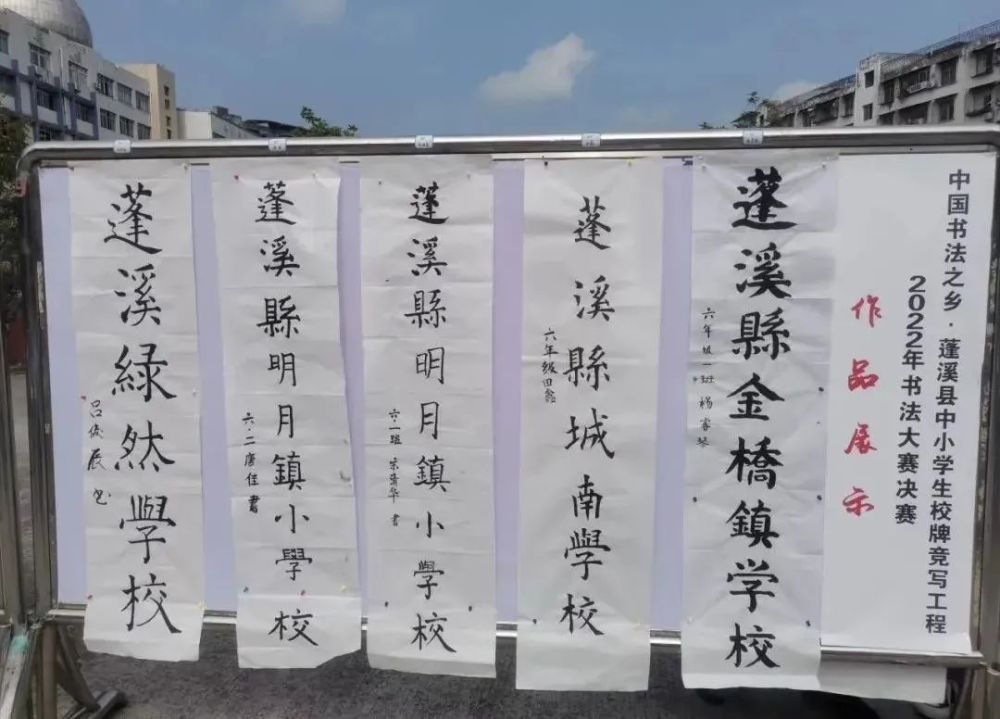 中国书法之乡·蓬溪县中小学生校牌竞写工程
2022年书法大赛决赛
作品展示
蓬溪縣金橋鎮学校
六年级一班
蓬溪縣城南學校
六年级田
蓬溪縣明月鎮小學校
六·一班 宗 华 書
蓬溪縣明月鎮小學校
六·二唐佳書
蓬溪緑然學校
吕俊展 书